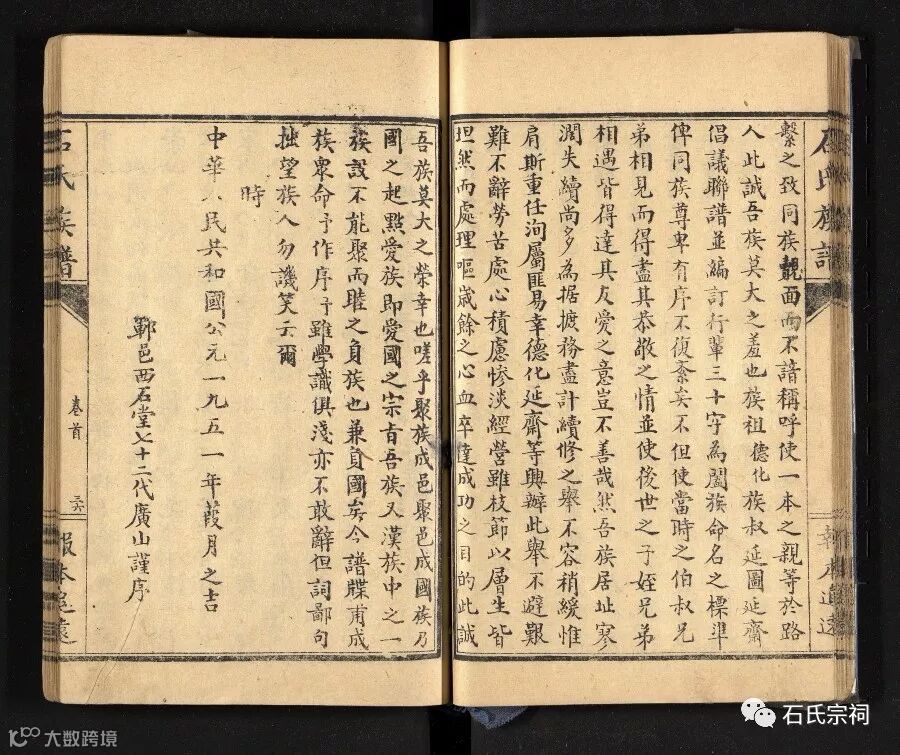 石氏族譜
繫之致同族觀面而不諳稱呼使一本之親等於路
人此誠吾族莫大之羞也族祖德化族叔延圖延齋
倡議聯譜並編訂行輩三十字為闔族命名之標準
俾同族尊卑有序不復紊矣不但使當時之伯叔兄
弟相見而得盡其恭敬之情並使後世之子姪兄弟
相遇皆得達其友愛之意豈不善哉然吾族居址寥
濶失續尚多為据摭務盡計續修之舉不容稍緩惟
肩斯重任洵屬匪易幸德化延齋等興辦此舉不避艱
雖不辭勞苦處心積慮慘淡經營雖枝節以層生皆
坦然而處理嘔歲餘之心血卒達成功之目的此誠
報本追遠
吾族莫大之榮幸也嗟乎聚族成邑聚邑成國族乃
國之起點愛族即愛國之宗旨吾族又漢族中之一
族設不能聚而睢之負族也兼負國矣今譜牒甫成
族衆命予作序予雖學識俱淺亦不敢辭但詞鄙句
拙望族人勿譏笑云爾
時
中華人民共和國公元一九五一年葭月之吉
鄆邑西石堂七十二代廣山謹序
石氏族譜
卷首
三六
報本追遠
石氏宗祠
大数跨境